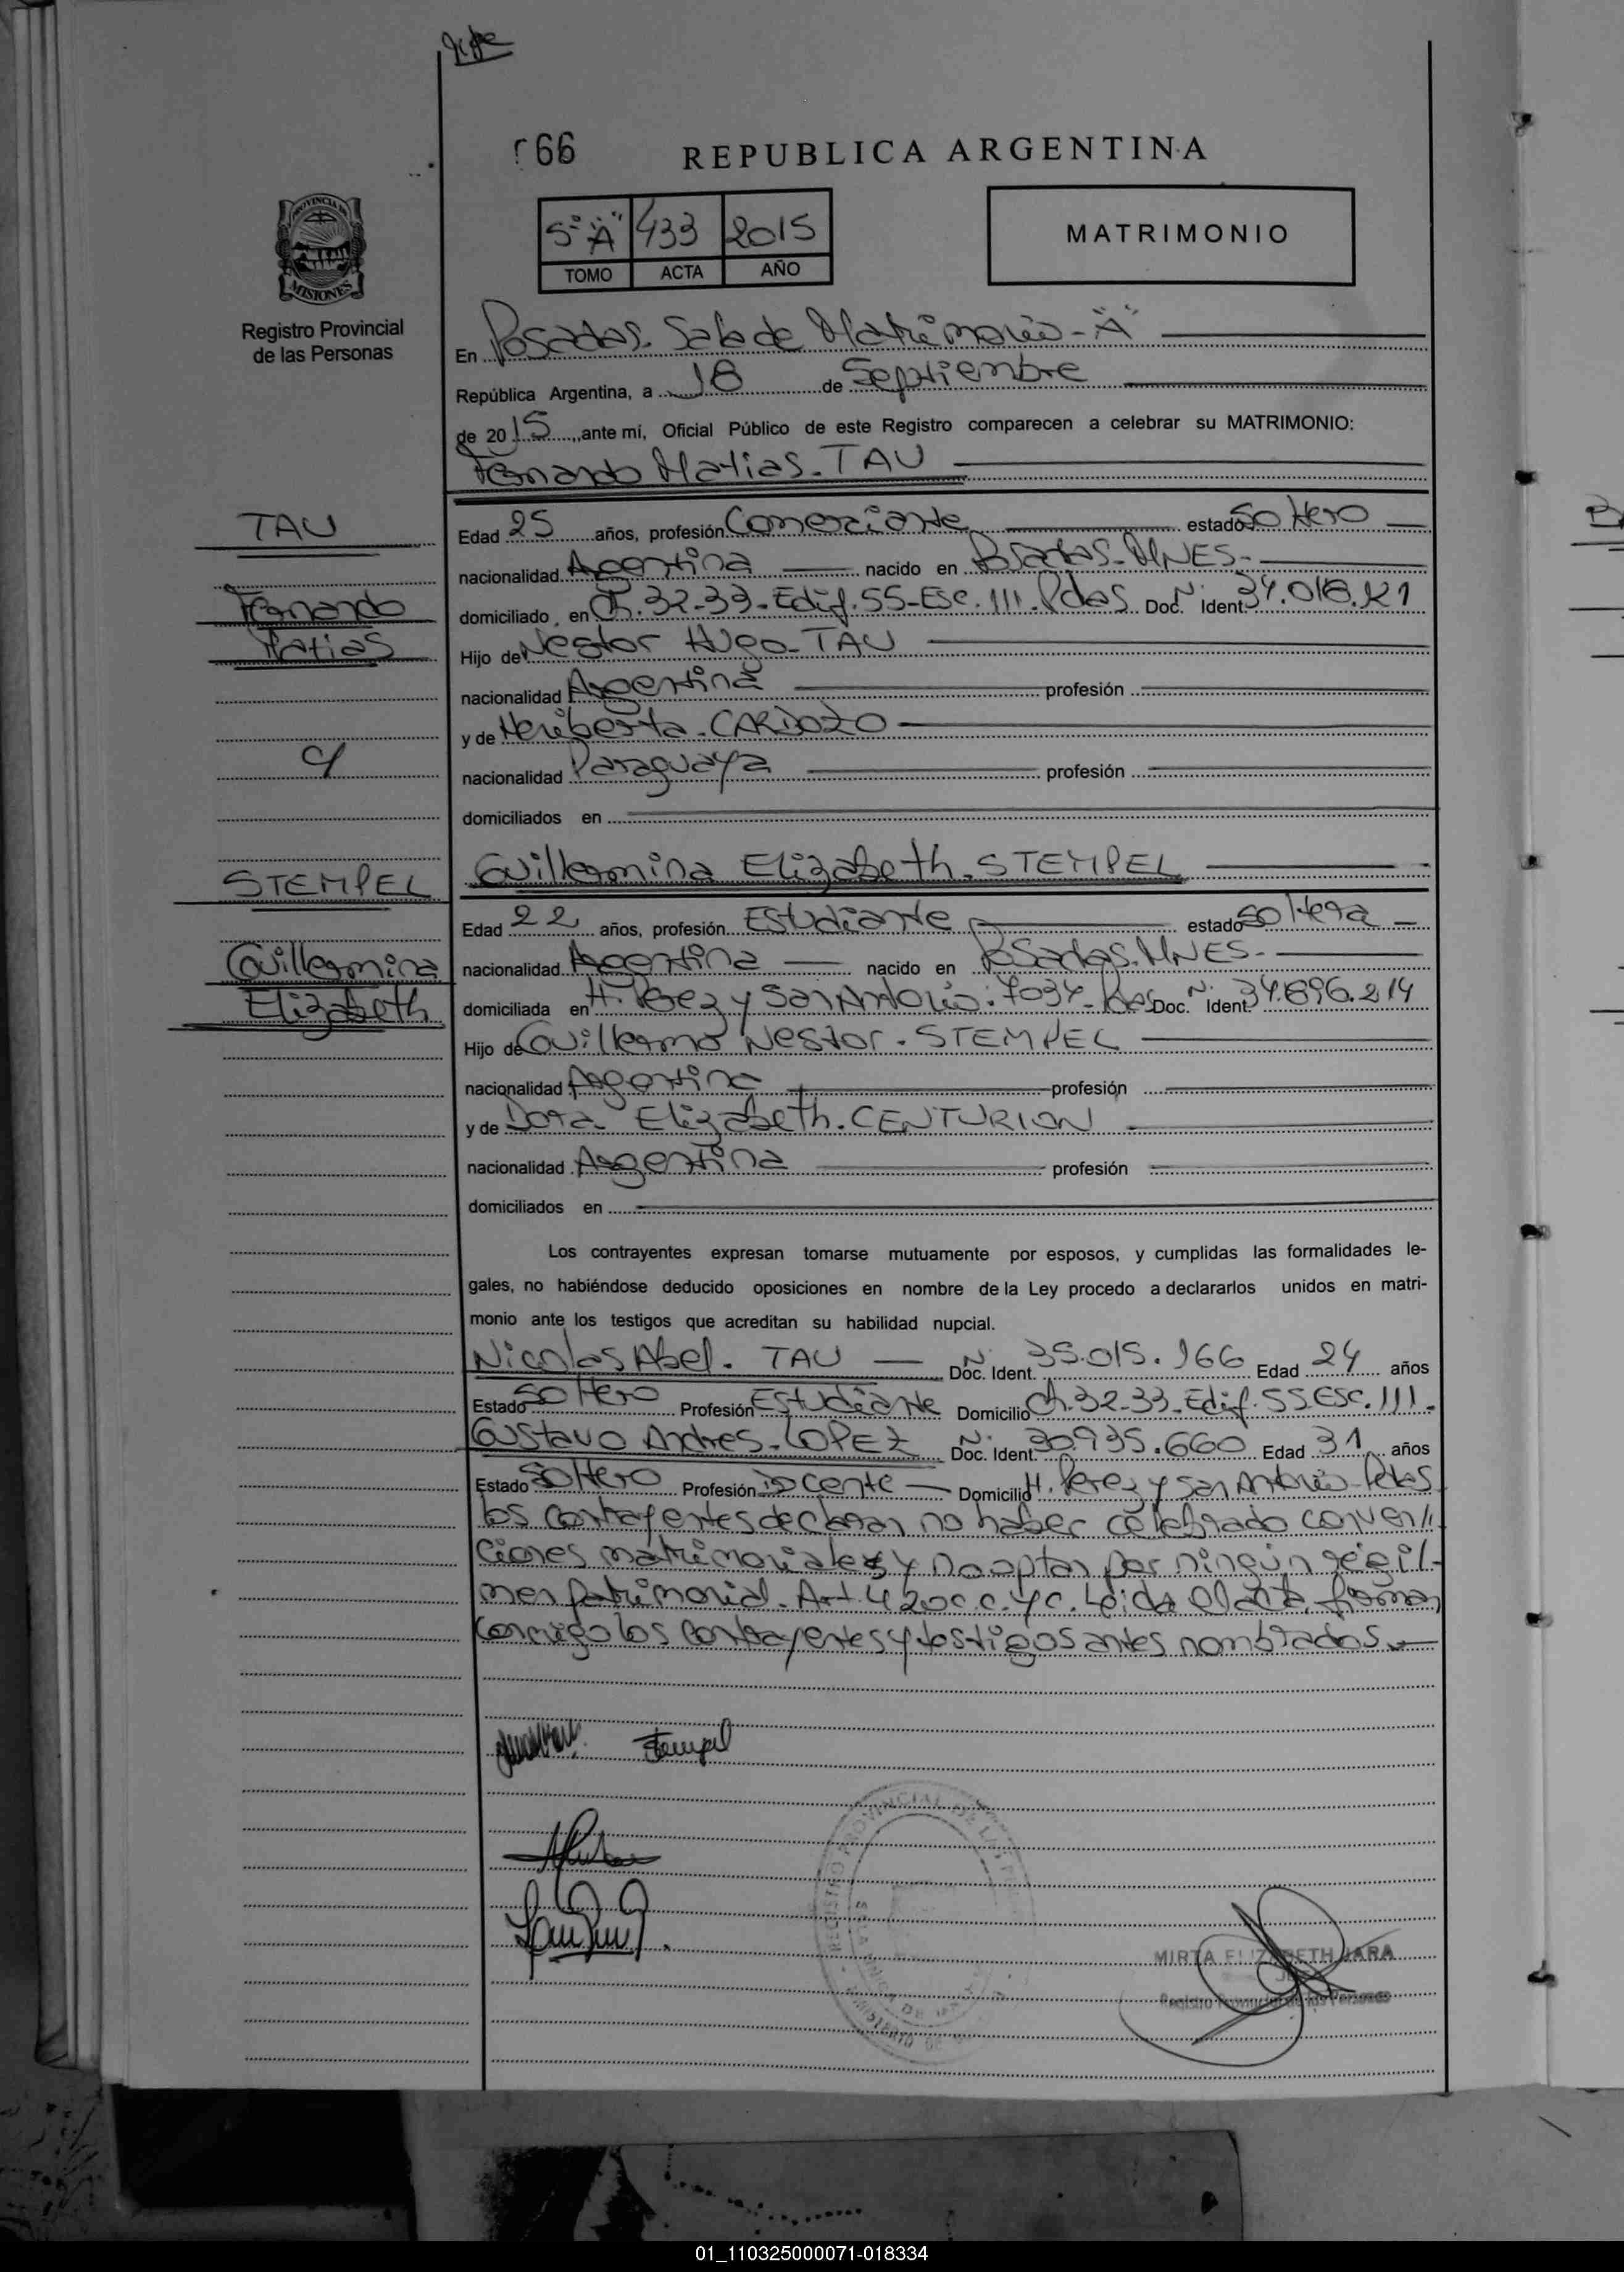 66
REPUBLICA ARGENTINA
5° "A" 433 2015
TOMO ACTA AÑO
MATRIMONIO
PROVINCIA DE
MISIONES
Registro Provincial
de las Personas
En Posadas. Sala de Matrimonio - "A"
República Argentina, a 18 de Septiembre
de 2015, ante mí, Oficial Público de este Registro comparecen a celebrar su MATRIMONIO:
Fernando Matias. TAU
TAU
Fernando
Matias
Edad 25 años, profesión Comerciante estado Soltero
nacionalidad Argentina nacido en Posadas-MNES-
domiciliado en Ch. 32-33-Edif. 55-Esc. III. Pdas. Doc. N° Ident.
Hijo de Nestor Hugo-TAU
nacionalidad Argentina profesión
y de Heriberta-CARDOZO
nacionalidad Paraguaya profesión
domiciliados en
c/
STEMPEL
Guillermina
Elizabeth
Guillermina Elizabeth. STEMPEL
Edad 22 años, profesión Estudiante estado Soltera
nacionalidad Argentina nacido en Posadas. MNES-
domiciliada en H. Perez y San Antonio. 7034- Doc. N° Ident. 34.896.214
Hijo de Guillermo Nestor. STEMPEL
nacionalidad Argentina profesión
y de Dora Elizabeth. CENTURION
nacionalidad Argentina profesión
domiciliados en
Los contrayentes expresan tomarse mutuamente por esposos, y cumplidas las formalidades le-
gales, no habiéndose deducido oposiciones en nombre de la Ley procedo a declararlos unidos en matri-
monio ante los testigos que acreditan su habilidad nupcial.
Nicolas Abel. TAU Doc. N° Ident. 35.015.166 Edad 24 años
Estado Soltero Profesión Estudiante Domicilio Ch. 32-33-Edif. 55 Esc. III.
Gustavo Andres-LOPEZ Doc. N° Ident. 30.935.660 Edad 31 años
Estado Soltero Profesión Docente Domicilio H. Perez y San Antonio-Pdas
los contrayentes declaran no haber celebrado conven//
ciones matrimoniales y no optan por ningún régi/-
men patrimonial. Art. 420 c.c.yc. Leida el acta, firman
conmigo los contrayentes y testigos antes nombrados.
Stempel
MIRTA ELIZABETH JARA
JEFA
Registro Provincial de las Personas
01_110325000071-018334